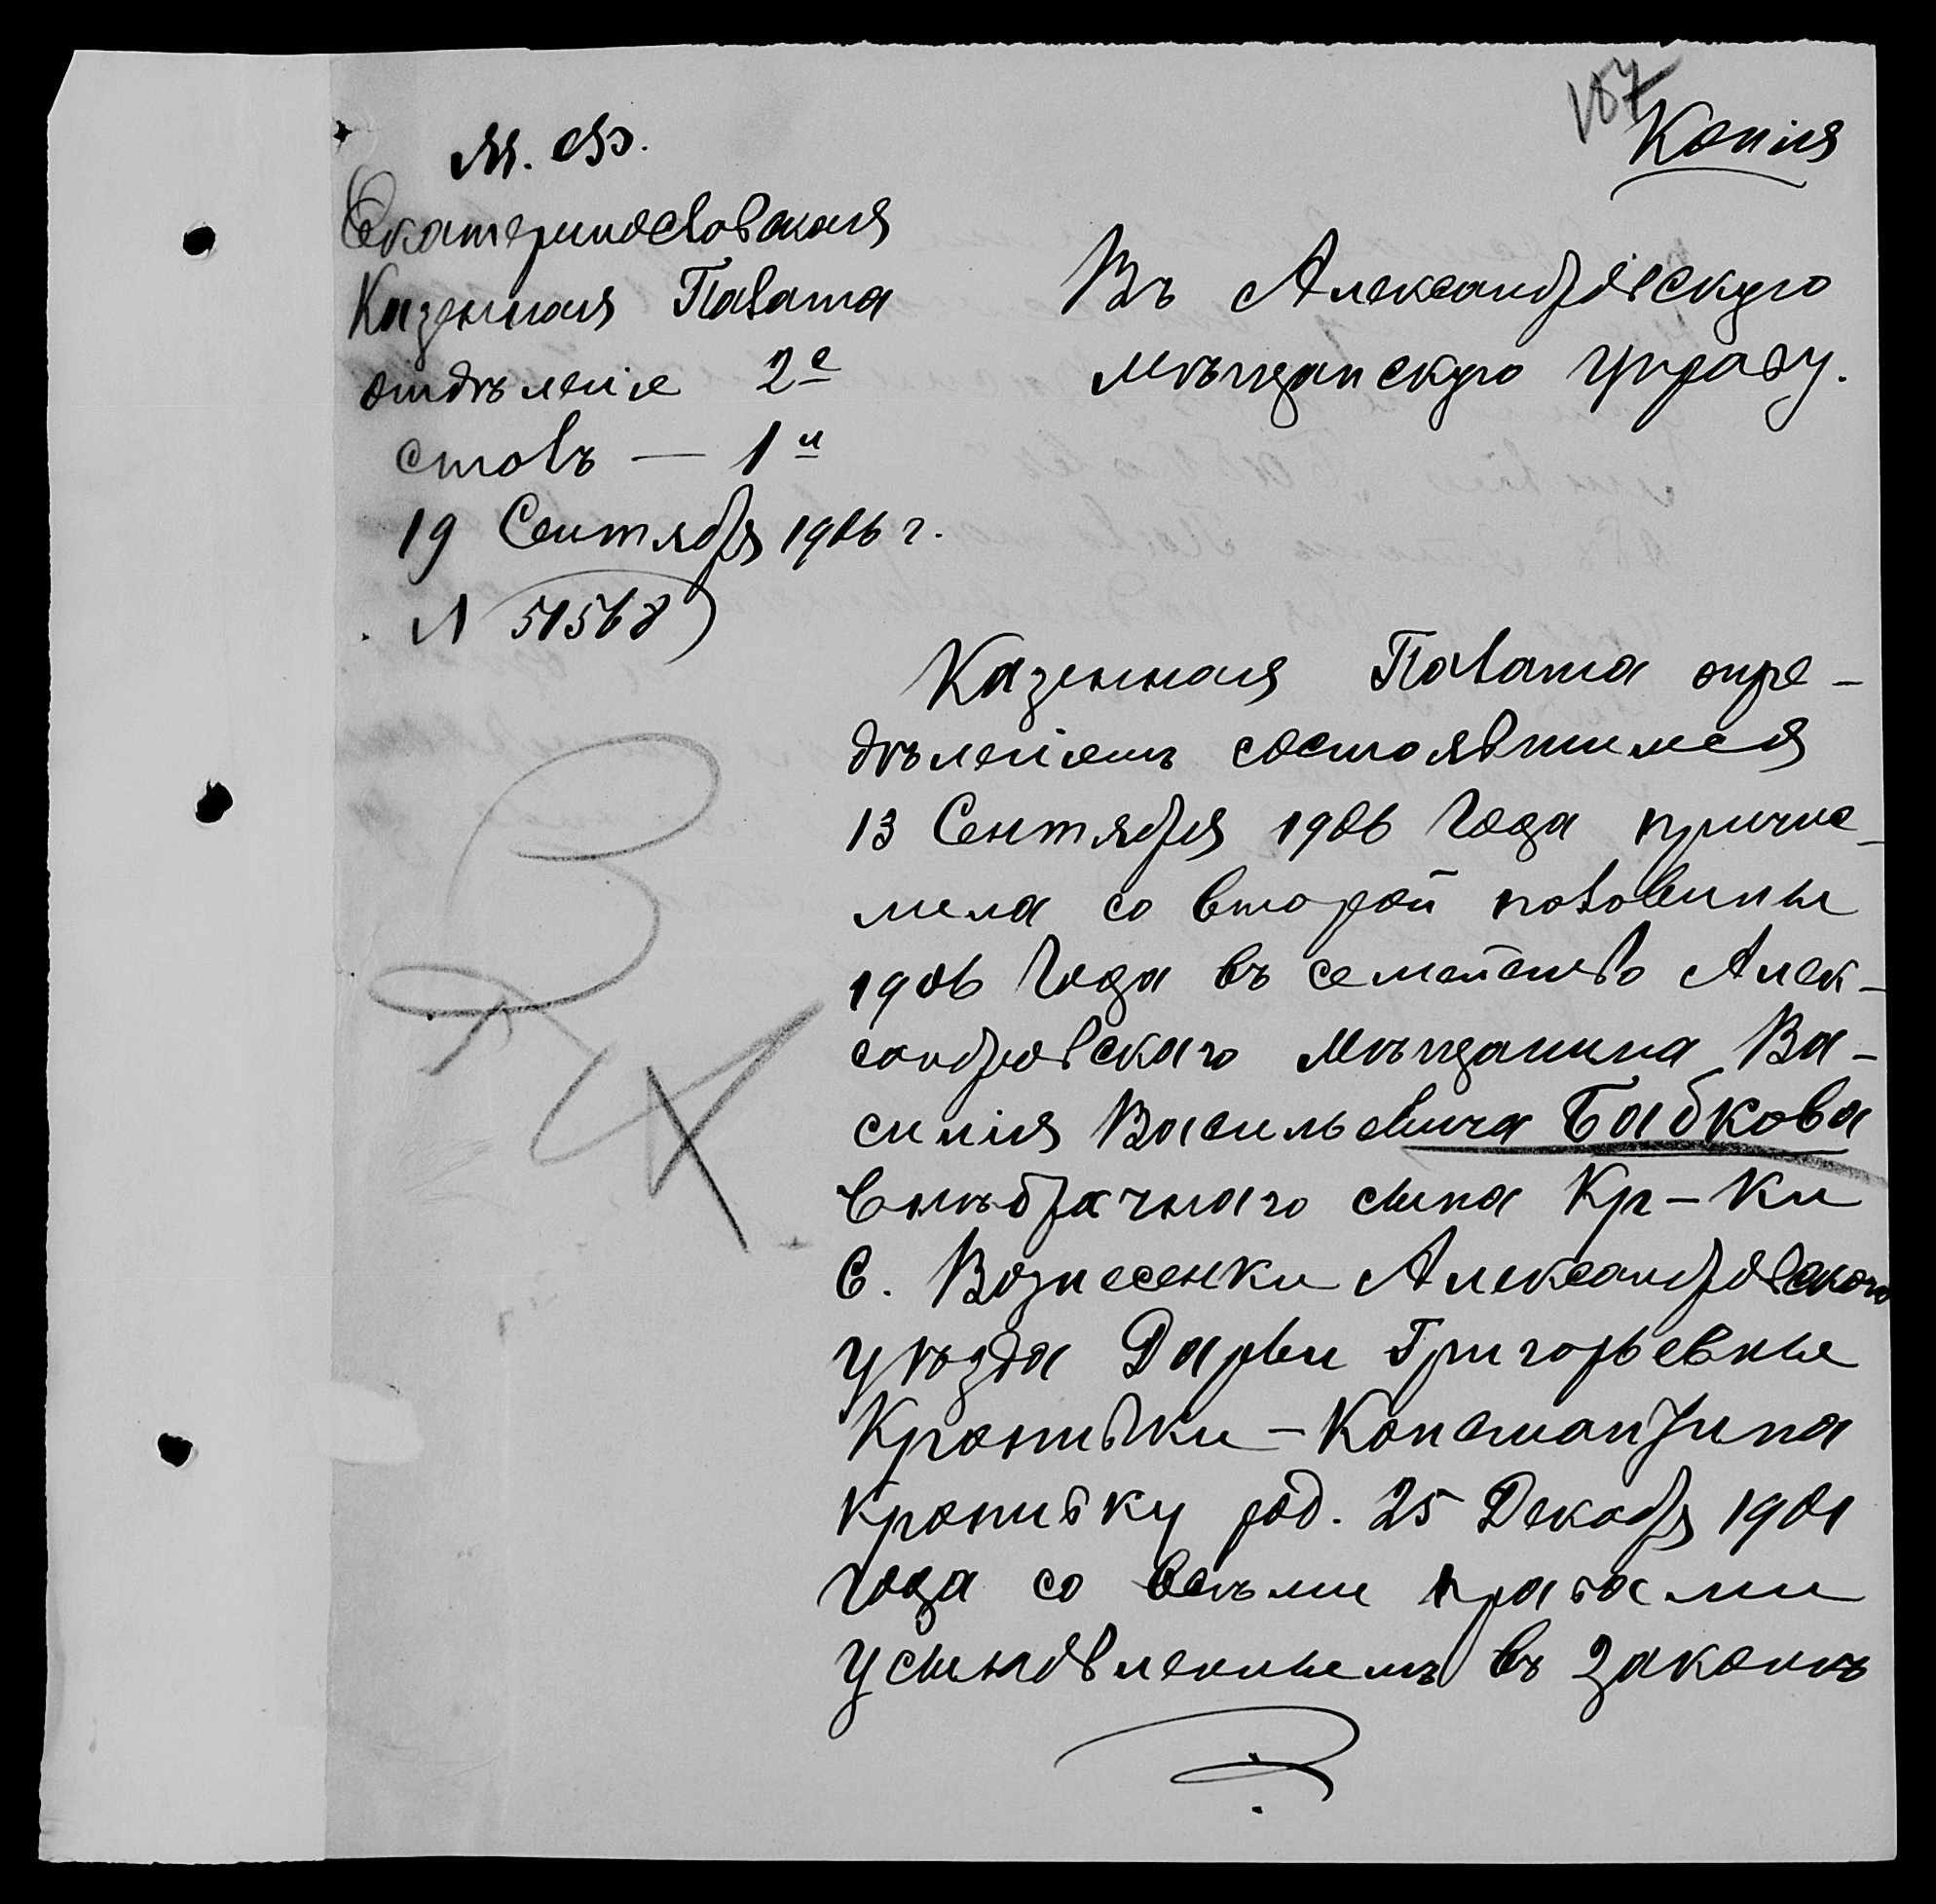 107
Копія
М. Ф.
Екатеринославская
Казенная Палата
отдѣленіе 2е
столъ — 1й
19 Сентября 1906 г.
№ 51568
Въ Александровскую
мѣщанскую Управу.
Казенная Палата опре-
дѣленіемъ состоявшимся
13 Сентября 1906 года причис-
лила со второй половины
1906 года въ семейство Алек-
сандровскаго мѣщанина Ва-
силія Васильевича Бабкова
внѣбрачнаго сына Кр-ки
С. Вознесенки Александровскаго
уѣзда Дарьи Григорьевны
Кропивки - Константина
Кропивку род. 25 Декабря 1901
года со всѣми правами
усыновленнымъ въ законѣ